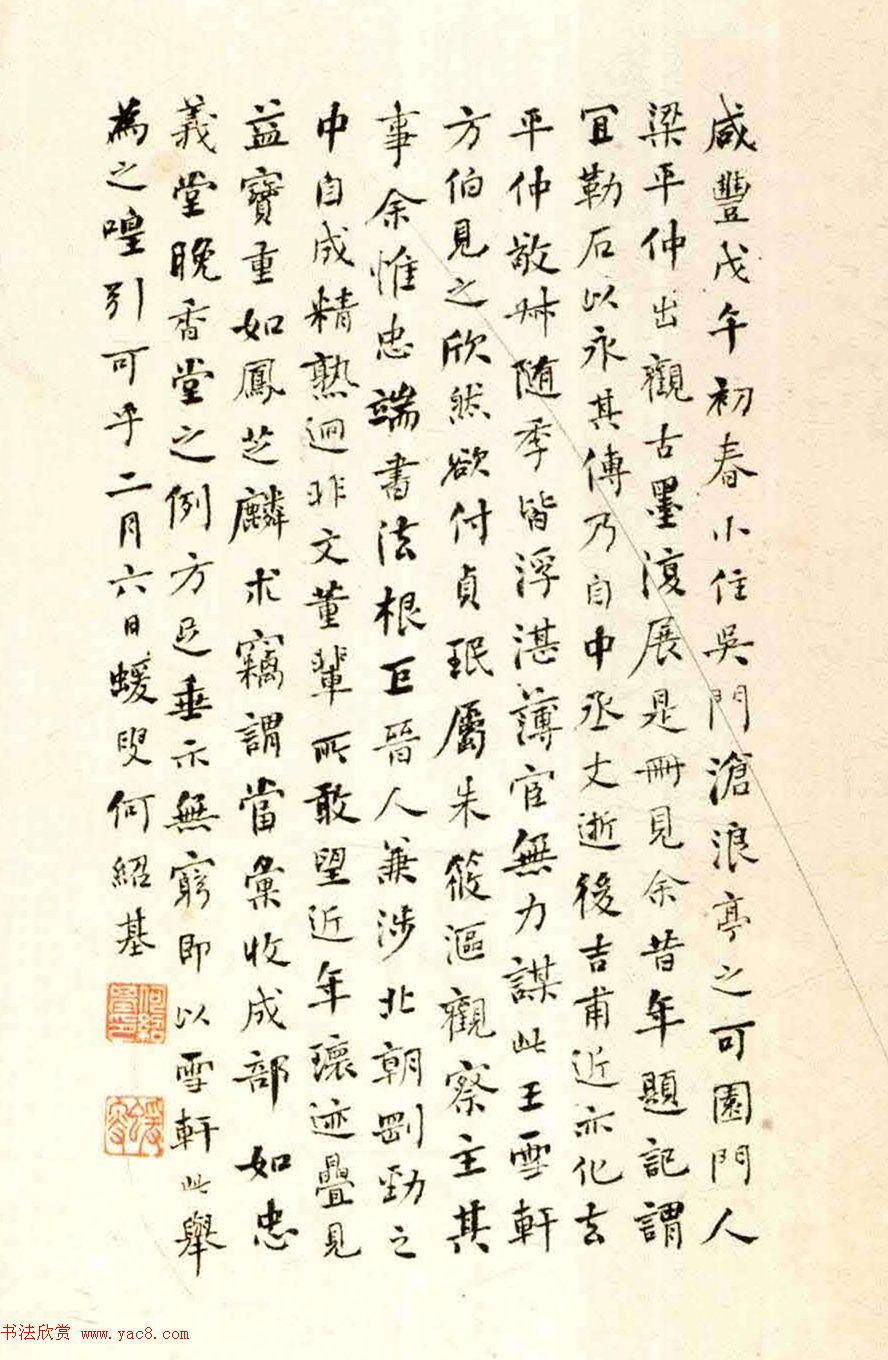 咸豐戊午初春小住吳門滄浪亭之可園門人
梁平仲出觀古墨復展是冊見余昔年題記謂
宜勒石以永其傳乃自中丞丈逝後吉甫近亦化去
平仲敬叔随季皆浮湛薄宦無力謀此王雪軒
方伯見之欣然欲付貞珉屬朱筱漚觀察主其
事余惟忠端書法根巨晉人兼涉北朝剛勁之
中自成精熟迥非文董輩所敢望近年瓌迹疊見
益寶重如鳳芝麟朮竊謂當彙收成部如忠
義堂晚香堂之例方足垂示無窮即以雪軒此舉
為之嚆引可乎二月六日蝯叟何紹基
何紹基印
蝯叟
书法欣赏 www.yac8.com